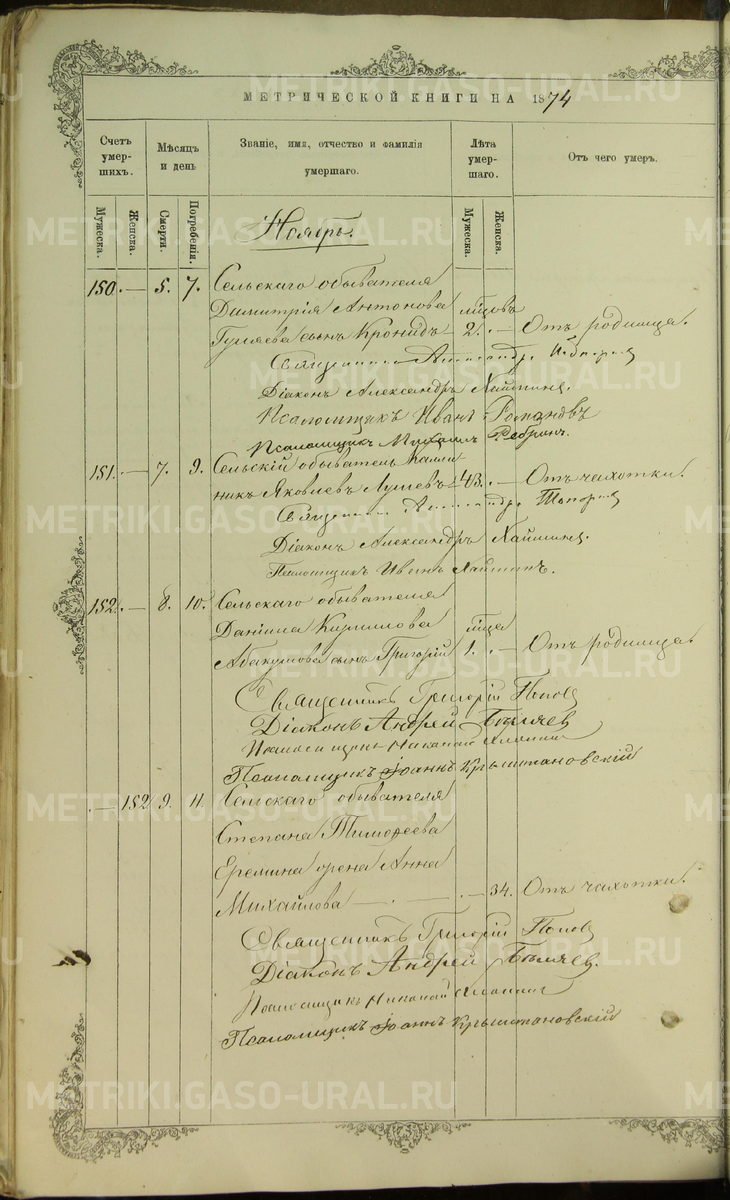 МЕТРИЧЕСКОЙ КНИГИ НА 1874
Счетъ умер- шихъ.
Мѣсяцъ и день
Званіе, имя, отчество и фамилія умершаго.
Лѣта умер- шаго.
Отъ чего умеръ.
Мужеска. Женска. Смерти. Погребенія. Мужеска. Женска.
Ноябрь.
150. — 5. 7. Сельскаго обывателя
Димитрія Антонова мѣсцовъ
Гуляева сынъ Кронидъ 2. — Отъ родимца.
Священникъ Александръ
Діаконъ Александръ Хайминъ.
Псаломщикъ Иванъ Романовъ
Псаломщикъ Михаилъ Ребринъ.
151. — 7. 9. Сельскій обыватель Калли-
никъ Яковлевъ 43. — Отъ чахотки.
Священникъ Александръ
Діаконъ Александръ Хайминъ.
Псаломщикъ Иванъ Хайминъ.
152. — 8. 10. Сельскаго обывателя
Даніила Кирилова мѣсца
Абакумова сынъ Григорій 1. — Отъ родимца.
Священникъ Григорій Поповъ
Діаконъ Андрей Бѣляевъ
Псаломщикъ Николай
Псаломщикъ Іоаннъ Крыштановскій
— 152 9. 11. Сельскаго обывателя
Степана Тимофеева
Еремина жена Анна
Михайлова — . — . — 34. Отъ чахотки.
Священникъ Григорій Поповъ
Діаконъ Андрей Бѣляевъ.
Псаломщикъ Николай
Псаломщикъ Іоаннъ Крыштановскій
METRIKI.GASO-URAL.RU